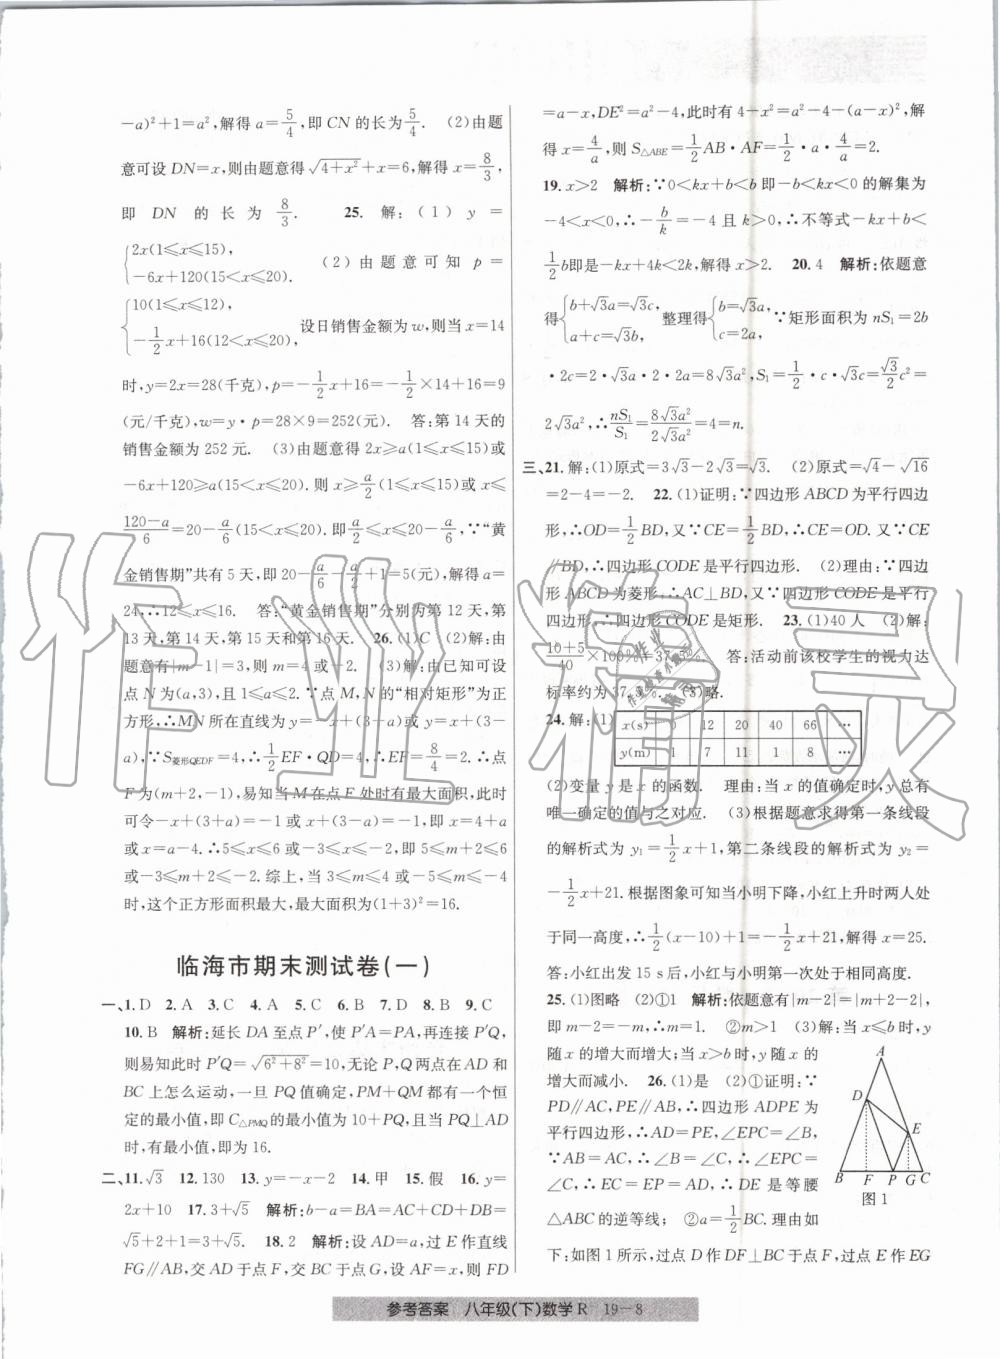 -a)²+1=a²,解得a=5/4,即CN的长为5/4. (2)由题
意可设DN=x,则由题意得√(4+x²)+x=6,解得x=8/3,
即DN的长为8/3. 25. 解:(1) y=
{2x(1≤x≤15),
-6x+120(15<x≤20). (2)由题意可知p=
{10(1≤x≤12),
-1/2x+16(12<x≤20). 设日销售金额为w,则当x=14
时,y=2x=28(千克),p=-1/2x+16=-1/2×14+16=9
(元/千克),w=y·p=28×9=252(元). 答:第14天的
销售金额为252元. (3)由题意得2x≥a(1≤x≤15)或
-6x+120≥a(15<x≤20).则x≥a/2(1≤x≤15)或x≤
(120-a)/6=20-a/6(15<x≤20).即a/2≤x≤20-a/6,∵“黄
金销售期”共有5天,即20-a/6-a/2+1=5(元),解得a=
24,∴12≤x≤16. 答:“黄金销售期”分别为第12天,第
13天,第14天,第15天和第16天. 26.(1)C (2)解:由
题意有|m-1|=3,解得m=4或-2. (3)解:由已知可设
点N为(a,3),且-5≤a≤2.∵点M,N的“相对矩形”为正
方形,∴MN所在直线为y=-x+(3+a)或y=x+(3-
a),∵S菱形QEDF=4,∴1/2EF·QD=4,∴EF=8/4=2.∴点
F为(m+2,-1),易知当M在点F处时有最大面积,此时
可令-x+(3+a)=-1或x+(3-a)=-1,即x=4+a
或x=a-4.∴5≤x≤6或-3≤x≤-2,即5≤m+2≤6
或-3≤m+2≤-2.综上,当3≤m≤4或-5≤m≤-4
时,这个正方形面积最大,最大面积为(1+3)²=16.
临海市期末测试卷(一)
一、1.D 2.A 3.C 4.A 5.C 6.B 7.D 8.B 9.C
10.B 解析:延长DA至点P′,使P′A=PA,再连接P′Q,
则易知此时P′Q=√(6²+8²)=10,无论P、Q两点在AD和
BC上怎么运动,一旦PQ值确定,PM+QM都有一个恒
定的最小值,即C△PMQ的最小值为10+PQ,且当PQ⊥AD
时,有最小值,即为16.
二、11.√3 12. 130 13. y=-x-2 14. 甲 15. 假 16. y=
2x+10 17. 3+√5 解析:b-a=BA=AC+CD+BD=
√5+2+1=3+√5. 18. 2 解析:设AD=a,过E作直线
FG∥AB,交AD于点F,交BC于点G,设AF=x,则FD
=a-x,DE²=a²-4,此时有4-x²=a²-4-(a-x)²,解
得x=4/a,则S△ABE=1/2AB·AF=1/2·a·4/a=2.
19. x>2 解析:∵0<kx+b<b即-b<kx<0的解集为
-4<x<0,∴-b/k=-4且k>0,∴不等式-kx+b<
1/2b即是-kx+4k<2k,解得x>2. 20. 4 解析:依题意
得{b+√3a=√3c, a+c=√3b, 整理得{b=√3a, c=2a, ∵矩形面积为nS₁=2b
·2c=2·√3a·2·2a=8√3a²,S₁=1/2·c·√3c=√3/2c²=
2√3a²,∴nS₁/S₁=8√3a²/2√3a²=4=n.
三、21.解:(1)原式=3√3-2√3=√3. (2)原式=√4-√16
=2-4=-2. 22.(1)证明:∵四边形ABCD为平行四边
形,∴OD=1/2BD,又∵CE=1/2BD,∴CE=OD.又∵CE
∥BD,∴四边形CODE是平行四边形. (2)理由:∵四边
形ABCD为菱形,∴AC⊥BD,又∵四边形CODE是平行
四边形,∴四边形CODE是矩形. 23.(1)40人 (2)解:
(10+5)/40×100%=37.5%. 答:活动前该校学生的视力达
标率约为37.5%. (3)略.
24.解:(1) x(s) 0 12 20 40 66 …
y(m) 1 7 11 1 8 …
(2)变量y是x的函数. 理由:当x的值确定时,y总有
唯一确定的值与之对应. (3)根据题意求得第一条线段
的解析式为y₁=1/2x+1,第二条线段的解析式为y₂=
-1/2x+21.根据图象可知当小明下降,小红上升时两人处
于同一高度,∴1/2(x-10)+1=-1/2x+21,解得x=25.
答:小红出发15 s后,小红与小明第一次处于相同高度.
25.(1)图略 (2)①1 解析:依题意有|m-2|=|m+2-2|,
即m-2=-m,∴m=1. ②m>1 (3)解:当x≤b时,y
随x的增大而增大;当x>b时,y随x的
增大而减小. 26.(1)是 (2)①证明:∵
PD∥AC,PE∥AB,∴四边形ADPE为
平行四边形,∴AD=PE,∠EPC=∠B,
∵AB=AC,∴∠B=∠C,∴∠EPC=
∠C,∴EC=EP=AD,∴DE是等腰
△ABC的逆等线; ②a=1/2BC.理由如
A
D
E
B F P G C
图1
下:如图1所示,过点D作DF⊥BC于点F,过点E作EG
参考答案 八年级(下)数学R 19-8
作业精灵